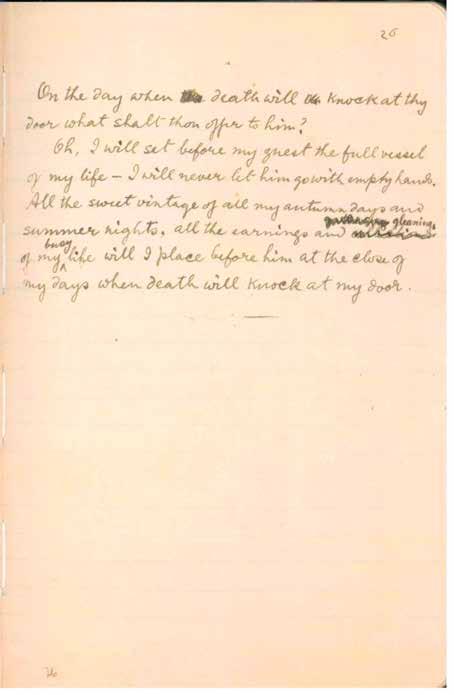 26
On the day when death will knock at thy
door what shalt thou offer to him?
Oh, I will set before my guest the full vessel
of my life – I will never let him go with empty hands.
All the sweet vintage of all my autumn days and
summer nights, all the earnings and gleanings
of my busy life will I place before him at the close of
my days when death will knock at my door.
26